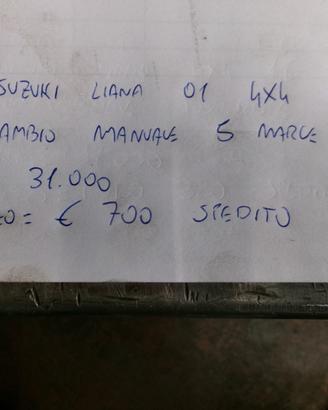 SUZUKI LIANA 01 4X4
AMBIO MANUALE 5 MARCE
31.000
ZO = € 700 SPEDITO